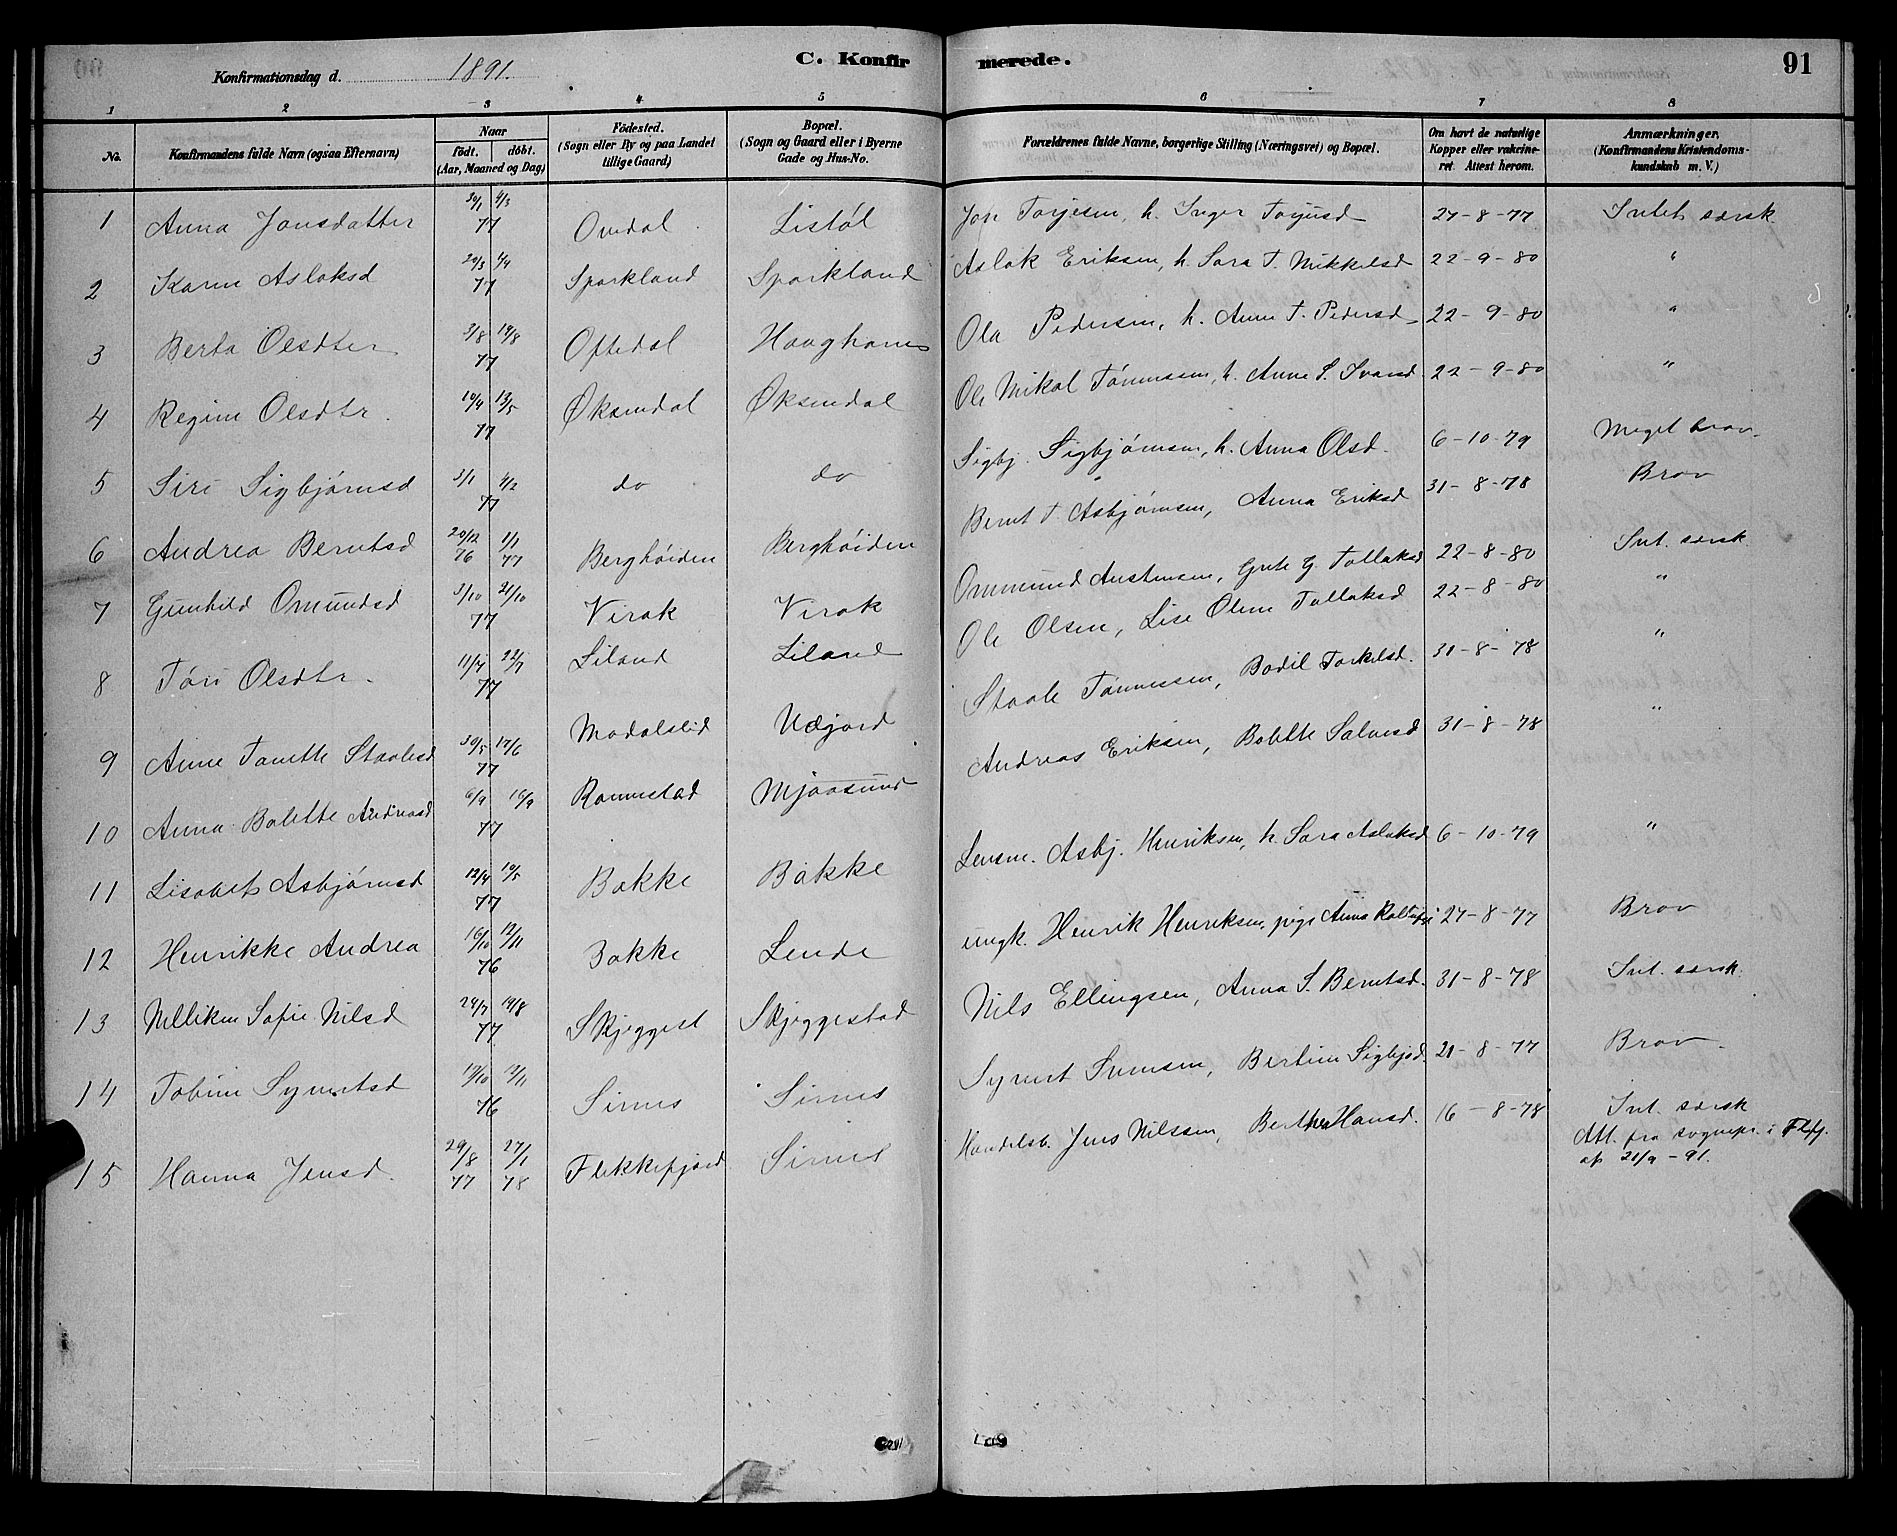 Konfirmationsdag d. 1891.
C. Konfirmerede.
91
1 2 3 4 5 6 7 8
No. Konfirmandens fulde Navn (ogsaa Efternavn) Naar født. døbt. (Aar, Maaned og Dag) Fødested. (Sogn eller By og paa Landet tillige Gaard) Bopæl. (Sogn og Gaard eller i Byerne Gade og Hus-No. Forældrenes fulde Navne, borgerlige Stilling (Næringsvei) og Bopæl. Om havt de naturlige Kopper eller vakcineret. Attest herom. Anmærkninger. (Konfirmandens Kristendomskundskab m. V.)
1 Anna Jonsdatter 30/1 4/3 77 Ovedal Listøl Jon Torjesen, h. Inger Torjusd 27-8-77 Intet særsk
2 Karen Aslaksd 20/3 4/4 77 Sparkland Sparkland Aslak Eriksen, h. Sara T. Mikkelsd 22-9-80 "
3 Berta Olsdter 3/8 19/8 77 Oftedal Haaghom Ola Pedersen, h. Anne T. Pedersd 22-9-80 "
4 Regine Olsdtr. 10/4 13/5 77 Øksendal Øksendal Ole Mikal Tønnesen, h. Anne S. Ivarsd 22-9-80 "
5 Siri Sigbjørnsd 3/1 4/2 77 do do Sigbj. Sigbjørnsen, h. Anna Olsd. 6-10-79 Meget brav.
6 Andrea Berntsd 20/12 76 1/1 77 Berghøiden Berghøiden Bernt T. Asbjørnsen, Anna Eriksd 31-8-78 Brav
7 Gunhild Omundsd 3/10 21/10 77 Virak Virak Ommund Austensen, Grete G. Tollaksd 22-8-80 Int. særsk.
8 Tøri Olsdtr. 11/7 22/7 77 Liland Liland Ole Olsen, Lise Oline Tollaksd 22-8-80 "
9 Anne Tonette Staalesd 30/5 17/6 77 Modalslid Uejord Staale Tønnessen, Bodil Torkelsd. 31-8-78 "
10 Anna Bolette Andreasd 6/9 16/9 77 Rannestad Mjaasund Andreas Eriksen, Bolette Salvesd 31-8-78 "
11 Lisabet Asbjørnsd 12/4 10/5 77 Bakke Bakke Lensm. Asbj. Henriksen, h. Sara Aslaksd 6-10-79 "
12 Henrikke Andrea 16/10 12/11 76 Bakke Lende ungk. Henrik Henriksen, pige Anna 27-8-77 Brav
13 Nelliken Sofie Nilsd 24/7 19/8 77 Skjeggest Skjeggestad Nils Ellingsen, Anna S. Berntsd. 31-8-78 Int. særsk.
14 Tobine Syvertsd 17/10 12/11 76 Sirnes Sirnes Syvert Svensen, Bertine Sigbjd. 21-8-77 Brav.
15 Hanna Jensd. 29/8 77 27/1 78 Flekkefjord Sirnes Handelsb. Jens Nilssen, Berthe Hansd. 16-8-78 Int. særsk
Att. fra sognepr. i Flfj.
af 21/9-91.